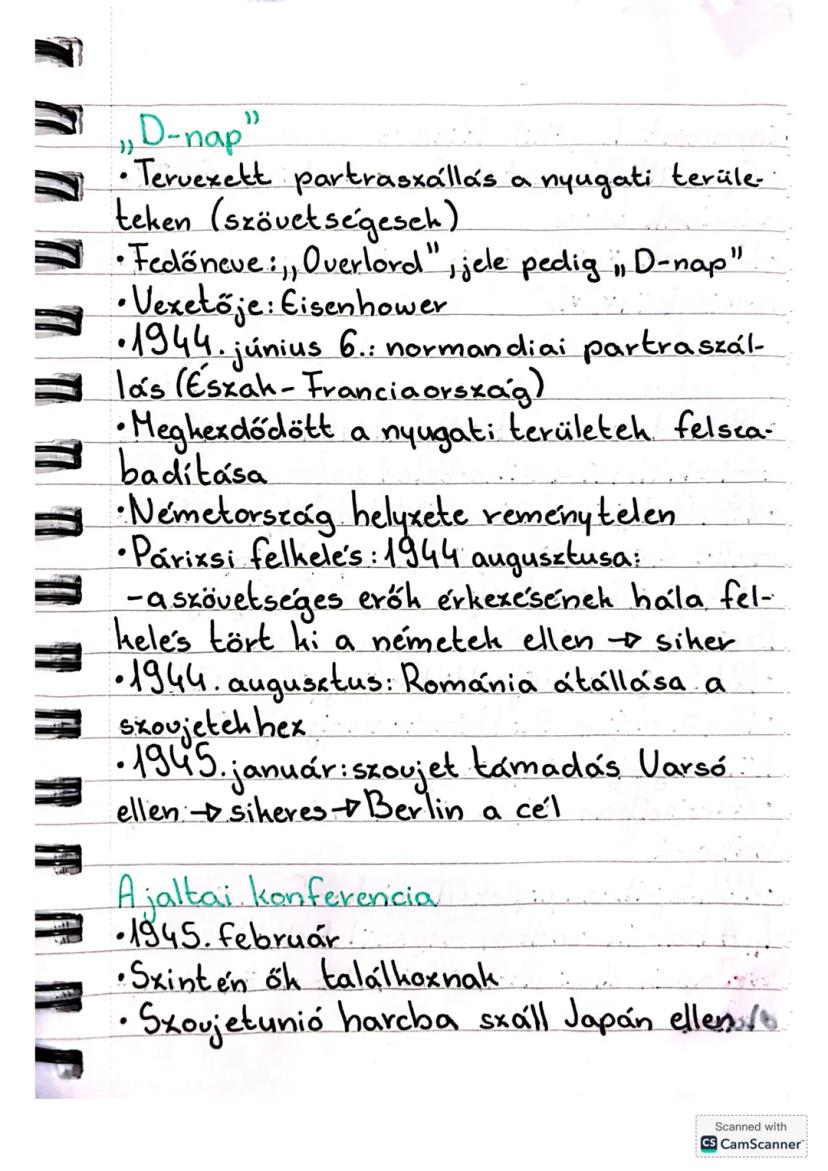 „D-nap"
• Tervezett partraszállás a nyugati terüle-
teken (szövetségesek)
• Fedőneve: „Overlord", jele pedig „D-nap"
• Vezetője: Eisenhower
• 1944. június 6.: normandiai partraszál-
lás (Észak-Franciaország)
• Megkezdődött a nyugati területek felsza-
badítása
• Németország helyzete reménytelen
• Párizsi felkelés: 1944 augusztusa:
- a szövetséges erők érkezésének hála fel-
kelés tört ki a németek ellen → siker
• 1944. augusztus: Románia átállása a
szovjetekhez
• 1945. január: szovjet támadás Varsó
ellen → sikeres → Berlin a cél
A jaltai konferencia
• 1945. február
• Szintén ők találkoznak
• Szovjetunió harcba száll Japán ellen
Scanned with
CS CamScanner